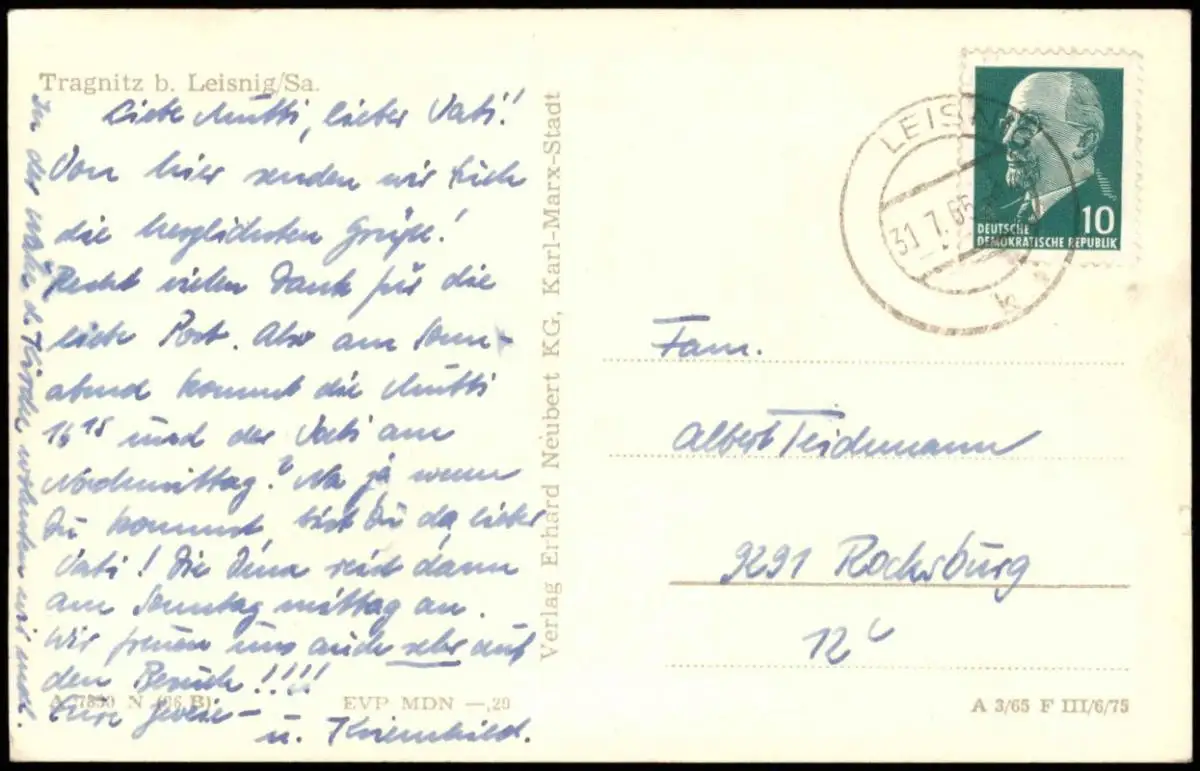 Tragnitz b. Leisnig/Sa.
Liebe Mutti, lieber Vati!
Von hier senden wir Euch
die herzlichsten Grüße!
Recht vielen Dank für die
liebe Post. Also am Sonn-
abend kommt die Mutti
16 15 und der Vati am
Nachmittag? Na ja, wenn
Du kommst, bist Du da, lieber
Vati! Die Irma reist dann
am Sonntag mittag an.
Wir freuen uns auch sehr auf
den Besuch!!!!
Eure
u. Kriemhild.
In der Nähe d. Kirche wohnten wir mal.
A 7830 N (96 B)
EVP MDN —,20
Verlag Erhard Neubert KG, Karl-Marx-Stadt
LEISNIG
31.7.65
b
10
DEUTSCHE
DEMOKRATISCHE REPUBLIK
Fam.
Albert Teidemann
9291 Rochsburg
12 c
A 3/65 F III/6/75